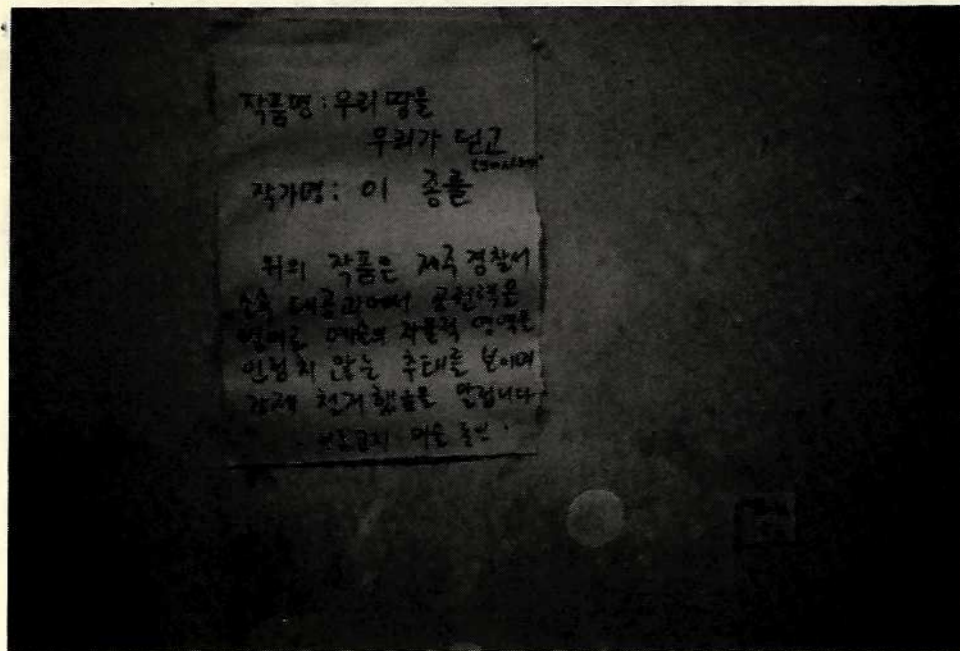 작품명: 우리 땅을
우리가 딛고
작가명: 이 종률
위의 작품은 제국 경찰서
소속 대공과에서 공권력은
예술의 자율적 영역을
인정치 않는 추태를 보이며
강제 철거했음을 알립니다
미술 동인